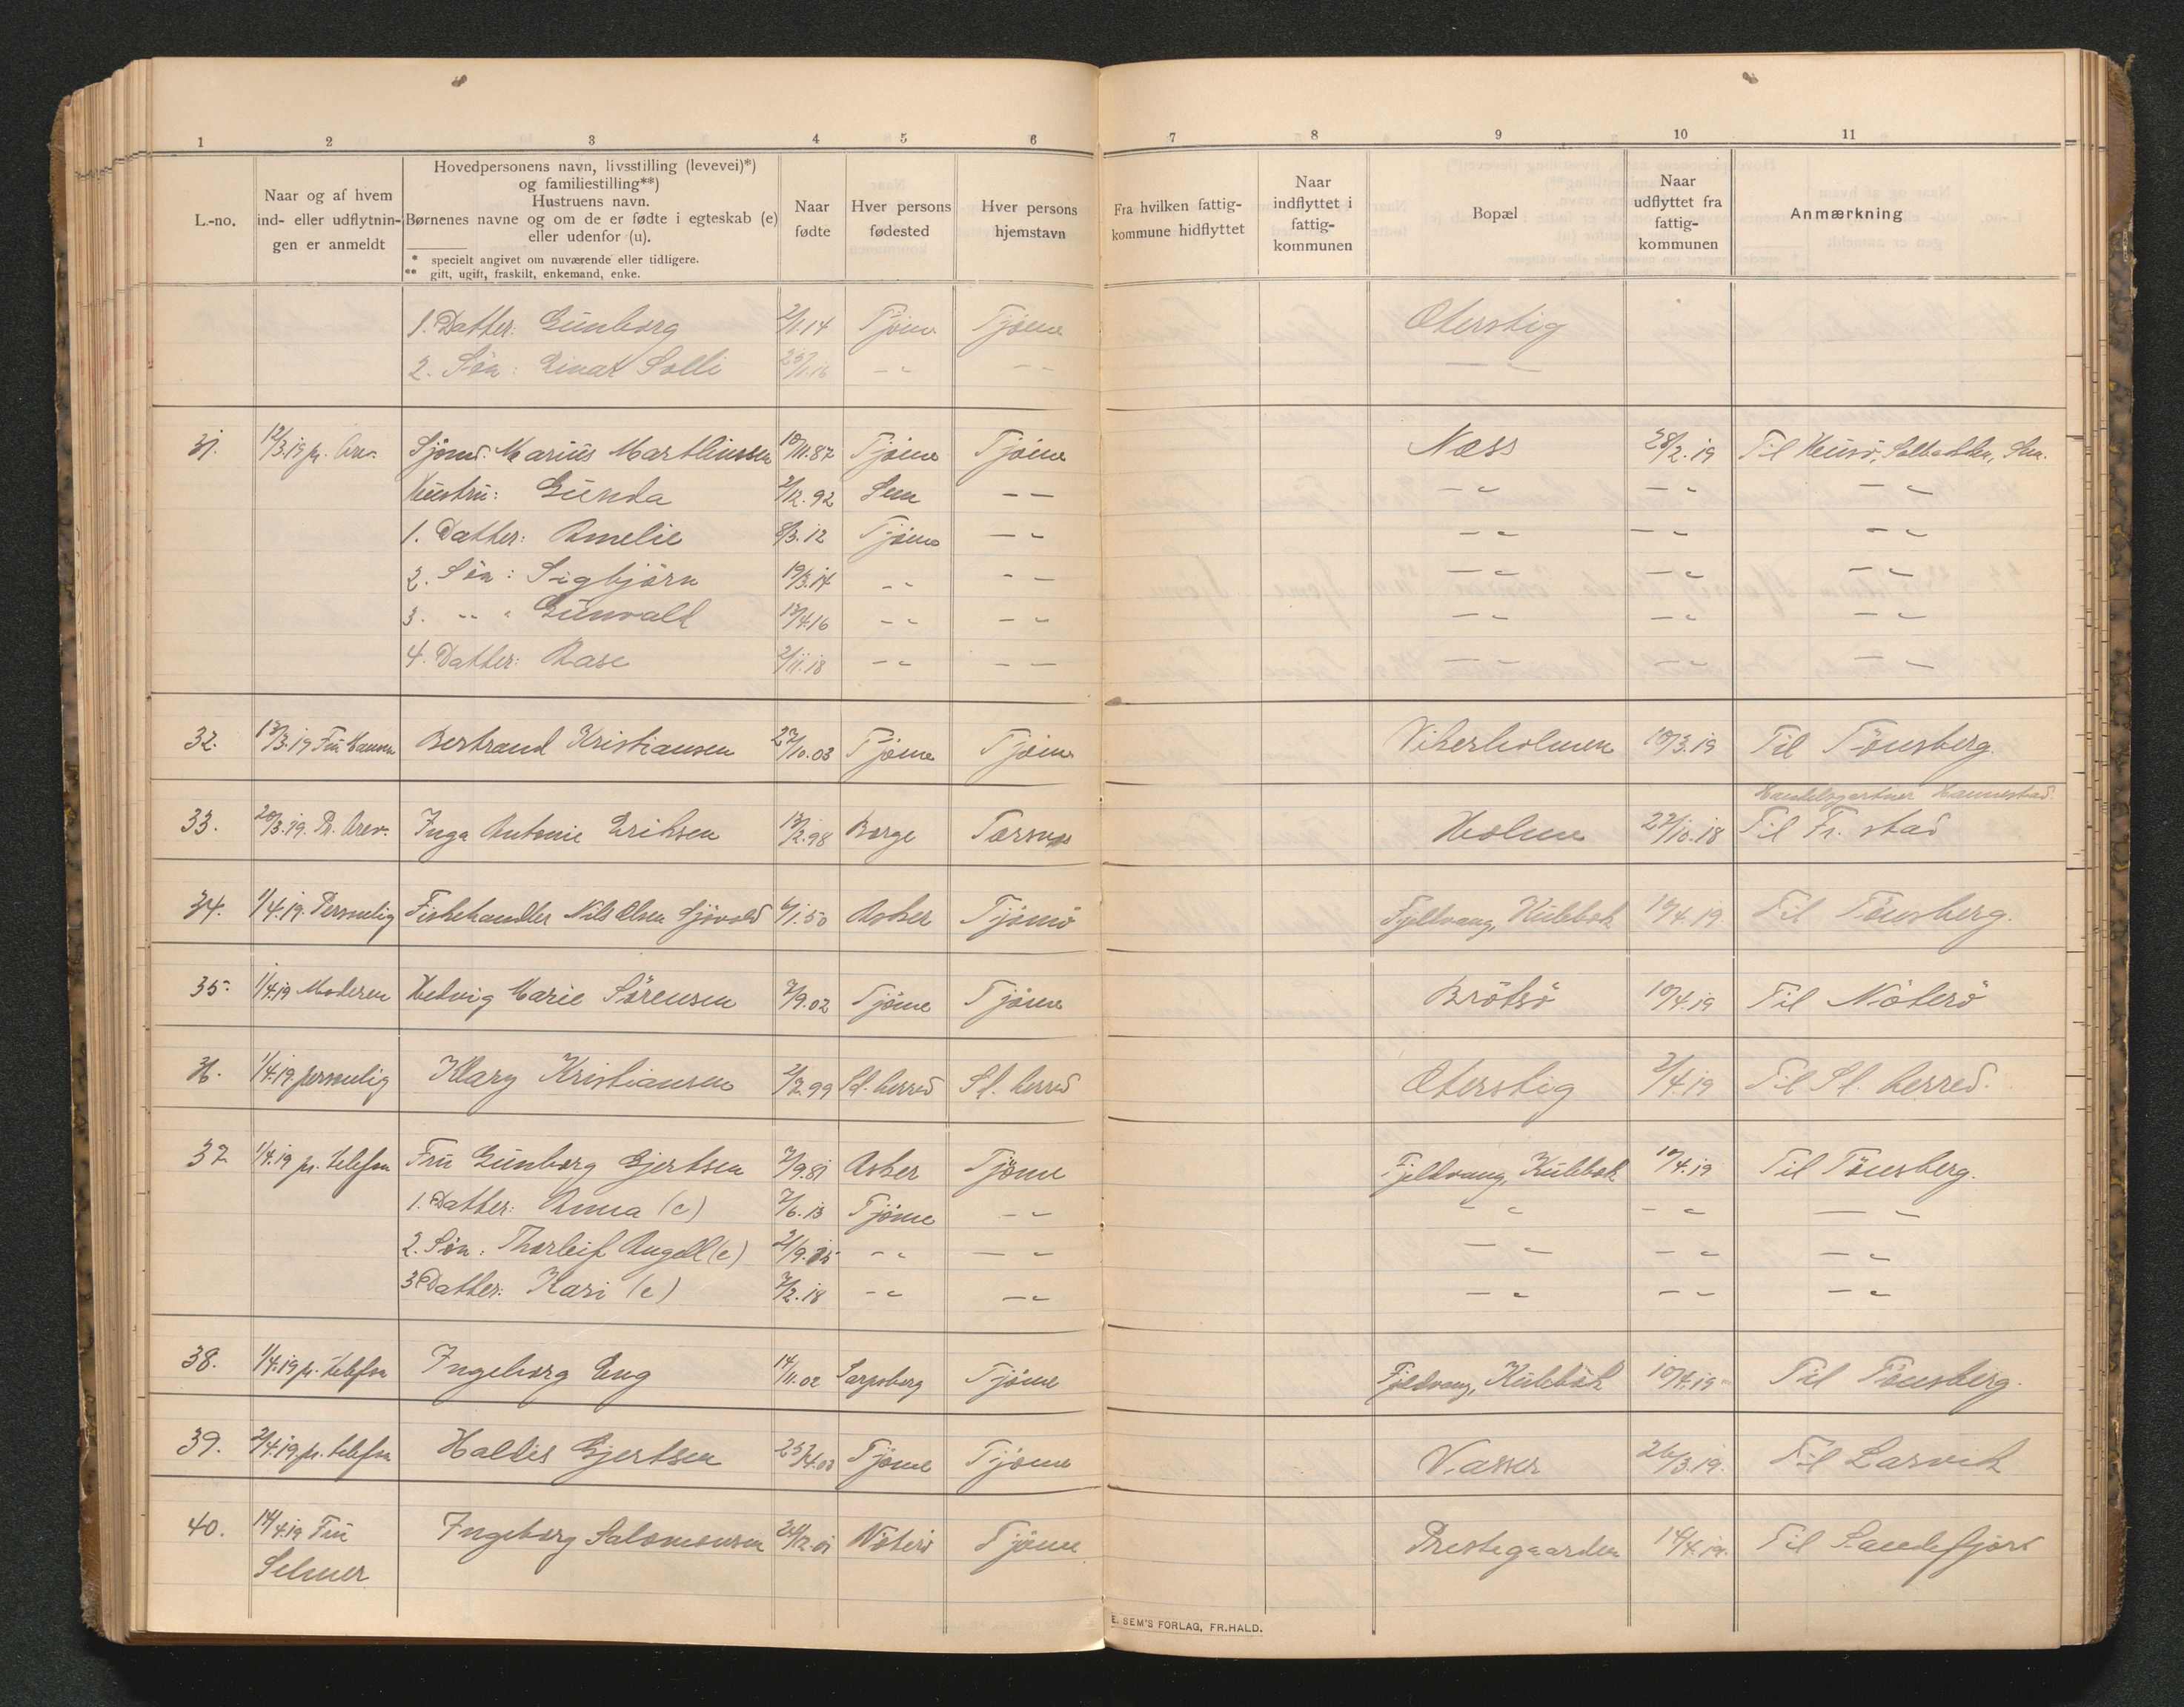 1 2 3 4 5 6 7 8 9 10 11
L.-no.
Naar og af hvem
ind- eller udflytnin-
gen er anmeldt
Hovedpersonens navn, livsstilling (levevei)*)
og familiestilling**)
Hustruens navn.
Børnenes navne og om de er fødte i egteskab (e)
eller udenfor (u).
* specielt angivet om nuværende eller tidligere.
** gift, ugift, fraskilt, enkemand, enke.
Naar
fødte
Hver persons
fødested
Hver persons
hjemstavn
Fra hvilken fattig-
kommune hidflyttet
Naar
indflyttet i
fattig-
kommunen
Bopæl
Naar
udflyttet fra
fattig-
kommunen
Anmærkning
1. Datter: Gunborg 2/1.14 Tjøme Tjøme Oterstig
2. Søn: Einar Solli 25/1.16 - " - - - "
31. 12/3.19 pr. Sjømd. Marius Marthinssen 10/11.87 Tjøme Tjøme Næss 28/2.19 Til Husø, Sem.
Hustru: Gunda 2/12.92 Sem - - - " - " - "
1. Datter: Amelie 8/3.12 Tjøme - " - " - " - "
2. Søn: Sigbjørn 19/3.14 - " - - - " - " - "
3. - " Gunvald 17/4.16 - " - " - " - " - "
4. Datter: Aase 2/11.18 - " - - - " - " - "
32. 13/3.19 Fru Hansen Bertrand Kristiansen 27/10.03 Tjøme Tjøme Vikerholmen 10/3.19 Til Tönsberg.
Handelsgartner Hannestad.
33. 20/3.19. Inga Antonie Eriksen 17/2.98 Borge Torsnes Holme 27/10.18 Til Fr. stad
34. 1/4.19. Personlig Fiskehandler Nils Olsen Gjøvold 6/1.50 Asker Tjømö Fjeldvang, Kulebæk 10/4.19. Til Tönsberg.
35. 1/4.19 Moderen Hedvig Marie Sörensen 7/9.02 Tjöme Tjöme Brötsö 10/4.19 Til Nöterö
36. 1/4.19 personlig Klary Kristiansen 2/7.99 Sl. herred Sl. herred Oterstig 2/4.19 Til Sl. herred.
37 1/4.19 pr. telefon Fru Gunborg Gjertsen 7/9.81 Asker Tjöme Fjeldvang, Kulebæk 10/4.19 Til Tönsberg.
1. Datter: Anna (e) 7/6.13 Tjöme - " - " - " - "
2. Søn: Thorleif Angell (e) 21/9.15 - " - " - " - " - "
3 Datter: Kari (e) 7/2.18 - " - " - " - " - "
38. 1/4.19 pr. telefon Ingeborg Eng 14/11.02 Sarpsborg Tjöme Fjeldvang, Kulebæk 10/4.19 Til Tönsberg.
39. 2/4.19 pr. telefon Haldis Gjertsen 25/4.03 Tjöme Tjöme Vasser 26/3.19. Til Larvik
40. 14/4.19 Fru Ingeborg Salomonsen 24/12.01 Nöterö Tjöme Prestegaarden 14/4.19. Til Sandefjord
Selmer
E. SEM'S FORLAG, FR.HALD.